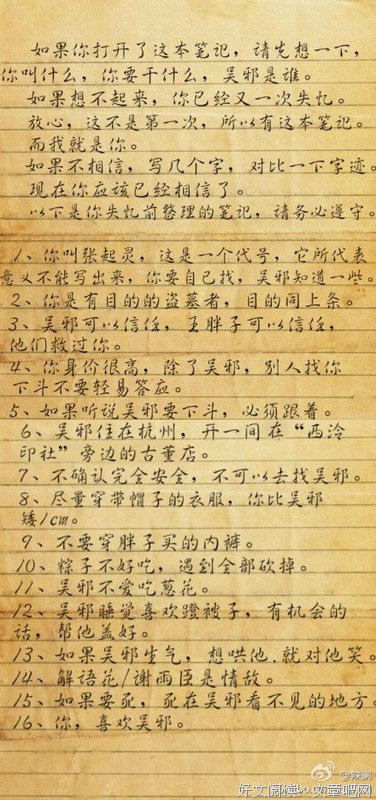 如果你打开了这本笔记，请先想一下，
你叫什么，你要干什么，吴邪是谁。
如果想不起来，你已经又一次失忆。
放心，这不是第一次，所以有这本笔记。
而我就是你。
如果不相信，写几个字，对比一下字迹。
现在你应该已经相信了。
以下是你失忆前整理的笔记，请务必遵守。
1、你叫张起灵，这是一个代号，它所代表
意义不能写出来，你要自己找，吴邪知道一些。
2、你是有目的的盗墓者，目的同上条。
3、吴邪可以信任，王胖子可以信任，
他们救过你。
4、你身价很高，除了吴邪，别人找你
下斗不要轻易答应。
5、如果听说吴邪要下斗，必须跟着。
6、吴邪住在杭州，开一间在“西泠
印社”旁边的古董店。
7、不确认完全安全，不可以去找吴邪。
8、尽量穿带帽子的衣服，你比吴邪
矮1cm。
9、不要穿胖子买的内裤。
10、粽子不好吃，遇到全部砍掉。
11、吴邪不爱吃葱花。
12、吴邪睡觉喜欢蹬被子，有机会的
话，帮他盖好。
13、如果吴邪生气，想哄他，就对他笑。
14、解语花/谢雨臣是情敌。
15、如果要死，死在吴邪看不见的地方。
16、你，喜欢吴邪。
好文阅读：文章吧网